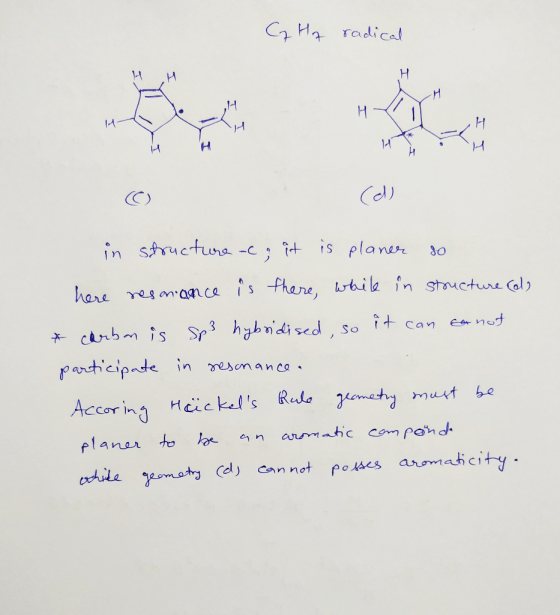 C7 H7 radical
H H H H H H H
H H H H H H H
(c) (d)
in structure -c ; it is planer so
here resonance is there, while in structure (d)
* carbon is Sp3 hybridised, so it can not
participate in resonance.
Accoring Hückel's Rule geometry must be
planer to be an aromatic compond.
while geometry (d) cannot posses aromaticity.